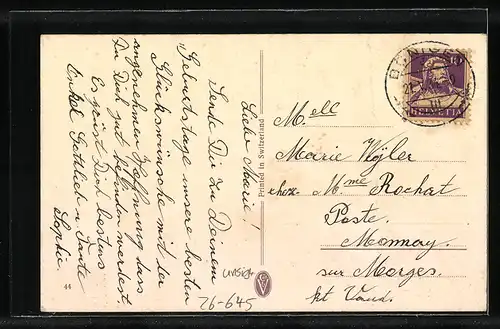 Liebe Marie!
Sende Dir zu Deinem
Geburtstage unsere besten
Glückwünsche mit der
angenehmen Hoffnung dass
Du Dich gut befinden werdest
Es grüsst Dich bestens
Onkel Gottlieb u. Tante
Sophie.
Printed in Switzerland
44
26-645
HELVETIA
Mell
Marie
chez Mme Rochat
Poste.
Monnay
sur Morges.
kt Vaud.